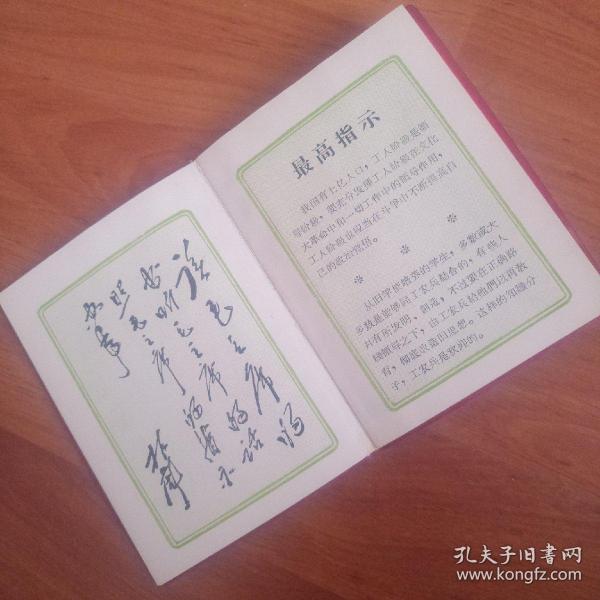 读毛主席的
书听毛主席的话
照毛主席的指示
办事
林彪
最高指示
我国有七亿人口，工人阶级是领
导阶级。要充分发挥工人阶级在文化
大革命中和一切工作中的领导作用。
工人阶级也应当在斗争中不断提高自
己的政治觉悟。
* * *
从旧学校培养的学生，多数或大
多数是能够同工农兵结合的，有些人
并有所发明、创造，不过要在正确路
线领导之下，由工农兵给他們以再教
育，彻底改造旧思想。这样的知識分
子，工农兵是欢迎的。
孔夫子旧書网
www.kongfz.com